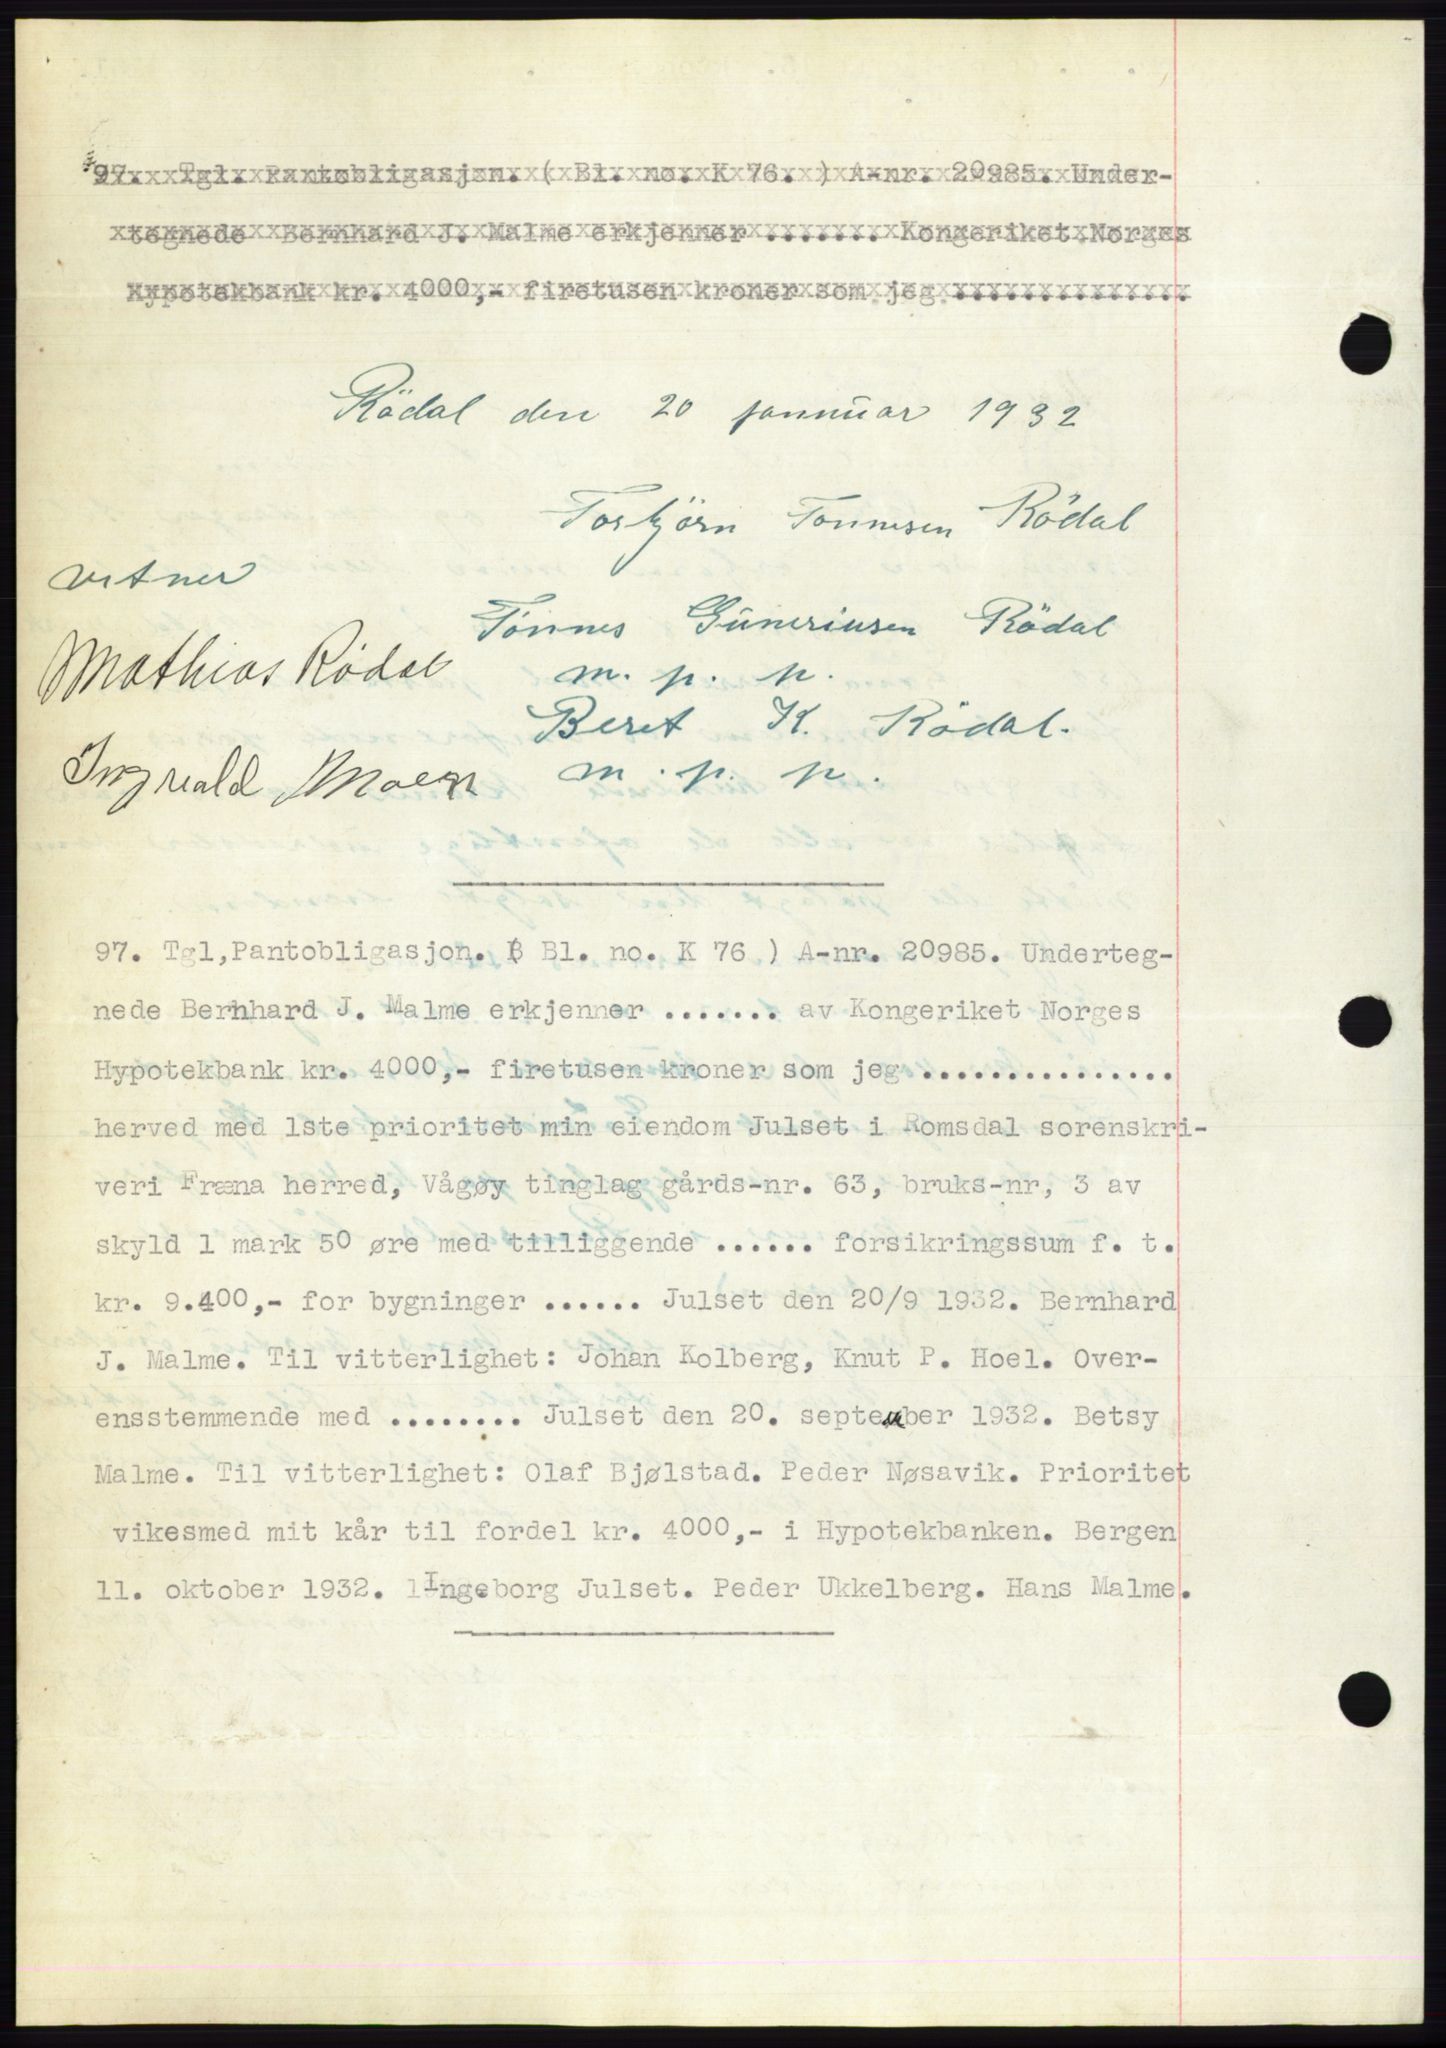 97. Tgl. Pantobligasjon. ( Bl. no. K 76. ) A-nr. 20985. Under-
tegnede Bernhard J. Malme erkjenner ....... Kongeriket Norges
Hypotekbank kr. 4000,- firetusen kroner som jeg ..............
Rödal den 20 januar 1932
Torbjörn Tönnesen Rödal
vitner
Tönnes Guneriusen Rödal
Mathias Rödal
m. p. p.
Beret K. Rödal.
Ingvald Moen
m. p. p.
97. Tgl,Pantobligasjon. ( Bl. no. K 76 ) A-nr. 20985. Underteg-
nede Bernhard J. Malme erkjenner ....... av Kongeriket Norges
Hypotekbank kr. 4000,- firetusen kroner som jeg ...............
herved med 1ste prioritet min eiendom Julset i Romsdal sorenskri-
veri Fræna herred, Vågøy tinglag gårds-nr. 63, bruks-nr, 3 av
skyld 1 mark 50 øre med tilliggende ...... forsikringssum f. t.
kr. 9.400,- for bygninger ...... Julset den 20/9 1932. Bernhard
J. Malme. Til vitterlighet: Johan Kolberg, Knut P. Hoel. Over-
ensstemmende med ........ Julset den 20. september 1932. Betsy
Malme. Til vitterlighet: Olaf Bjølstad. Peder Nøsavik. Prioritet
vikesmed mit kår til fordel kr. 4000,- i Hypotekbanken. Bergen
11. oktober 1932. Ingeborg Julset. Peder Ukkelberg. Hans Malme.